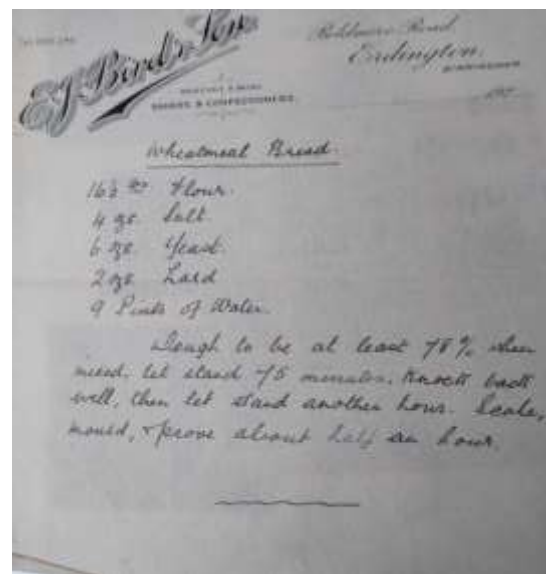 E J Bird & Son
BAKERS & CONFECTIONERS.
Boldmere Road,
Erdington,
BIRMINGHAM
Wheatmeal Bread.
16½ lbs Flour.
4 oz Salt.
6 oz Yeast.
2 oz Lard
9 Pints of Water.
Dough to be at least 78% when
mixed. let stand 75 minutes. Knock back
well, then let stand another hour. Scale,
mould, & prove about half an hour.